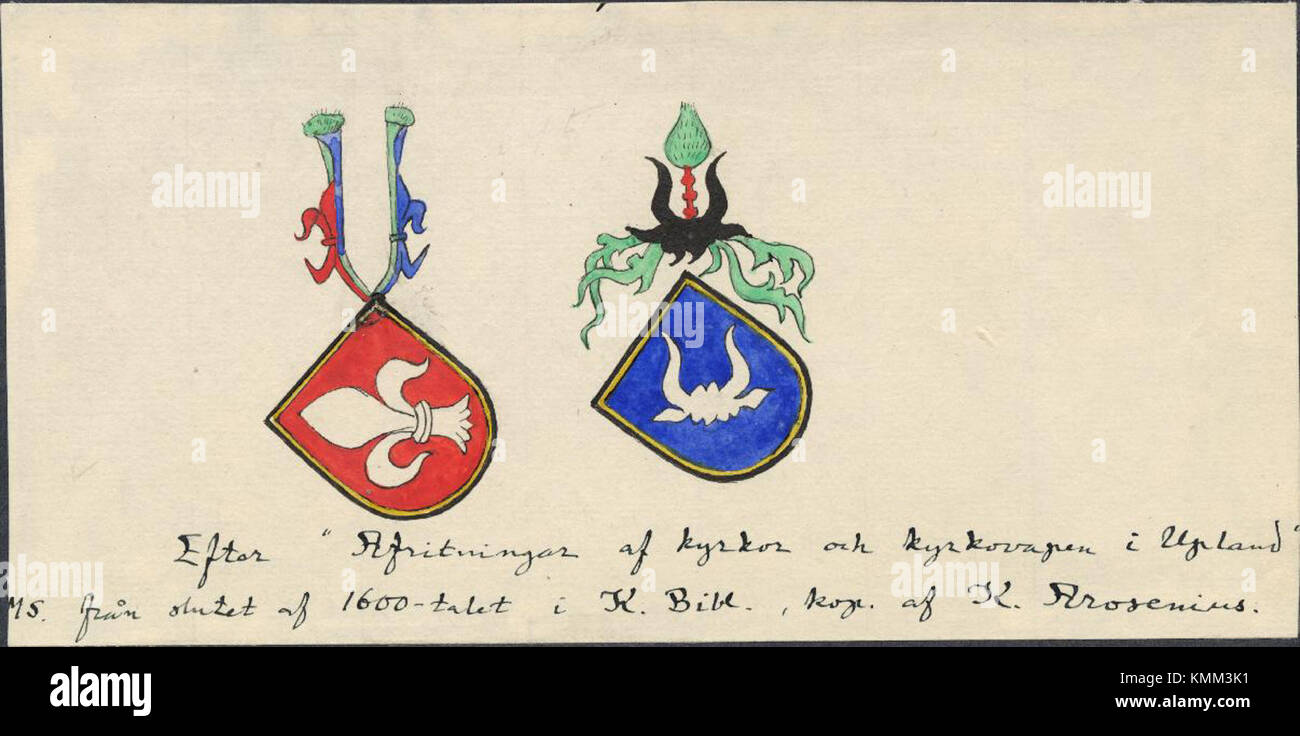 Efter "Afritningar af kyrkor och kyrkovapen i Upland"
MS. från slutet af 1600-talet i K. Bibl., kop. af K. Arosenius.
alamy
alamy
alamy
alamy
a
a
a
a
alamy
Image ID: KMM3K1
www.alamy.com